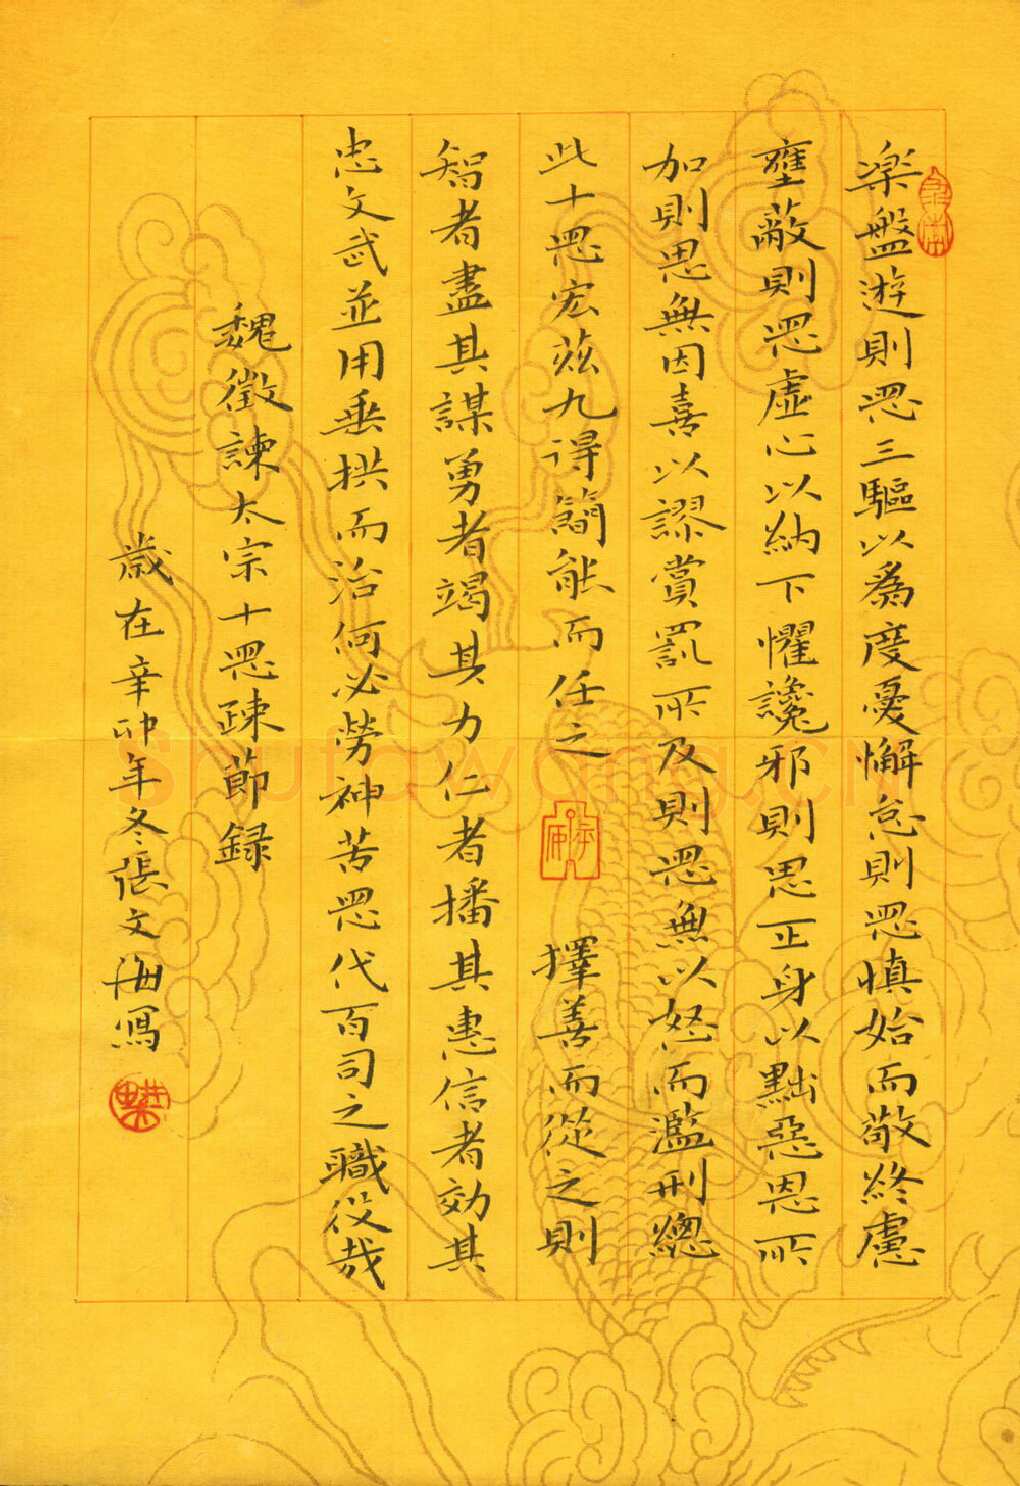 樂盤遊則思三驅以為度憂懈怠則思慎始而敬終慮
壅蔽則思虛心以納下懼讒邪則思正身以黜惡恩所
加則思無因喜以謬賞罰所及則思無以怒而濫刑總
此十思宏茲九得簡能而任之 擇善而從之則
智者盡其謀勇者竭其力仁者播其惠信者効其
忠文武並用垂拱而治何必勞神苦思代百司之職役哉
魏徵諫太宗十思疎節録
歲在辛卯年冬張文海寫
shufawang.cn